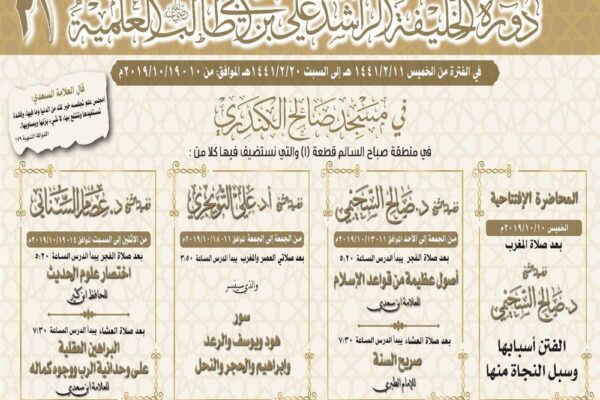 دورة الخليفة الراشد علي بن أبي طالب رضي الله عنه العلمية ٢١
في الفترة من الخميس ١٤٤١/٢/١١ هـ إلى السبت ١٤٤١/٢/٢٠هـ الموافق: من ١٠ - ٢٠١٩/١٠/١٩م
قال العلامة السعدي:
في مسجد صالح الكندري
في منطقة صباح السالم قطعة (١) والتي نستضيف فيها كلا من :
المحاضرة الإفتتاحية
الخميس ٢٠١٩/١٠/١٠م
بعد صلاة المغرب
فضيلة الشيخ
د. صالح السحيمي
الفتن أسبابها
وسبل النجاة منها
فضيلة الشيخ د. صالح السحيمي
من الجمعة إلى الأحد الموافق ١١-٢٠١٩/١٠/١٣م
بعد صلاة الفجر يبدأ الدرس الساعة ٥:٢٠
أصول عظيمة من قواعد الإسلام
للعلامة ابن سعدي
بعد صلاة العشاء يبدأ الدرس الساعة ٧:٣٠
صريح السنة
للإمام الطبري
فضيلة الشيخ أ.د. علي التويجري
من الجمعة إلى الجمعة الموافق ١١-٢٠١٩/١٠/١٨م
بعد صلاتي العصر والمغرب ٣:٥٠
والذي سيفسر
سور
هود ويوسف والرعد
وإبراهيم والحجر والنحل
فضيلة الشيخ د. عصام السناني
من الاثنين إلى السبت الموافق ١٤-٢٠١٩/١٠/١٩م
بعد صلاة الفجر يبدأ الدرس الساعة ٥:٢٠
اختصار علوم الحديث
للحافظ ابن كثير
بعد صلاة العشاء يبدأ الدرس الساعة ٧:٣٠
البراهين العقلية
على وحدانية الرب ووجوه كماله
للعلامة ابن سعدي